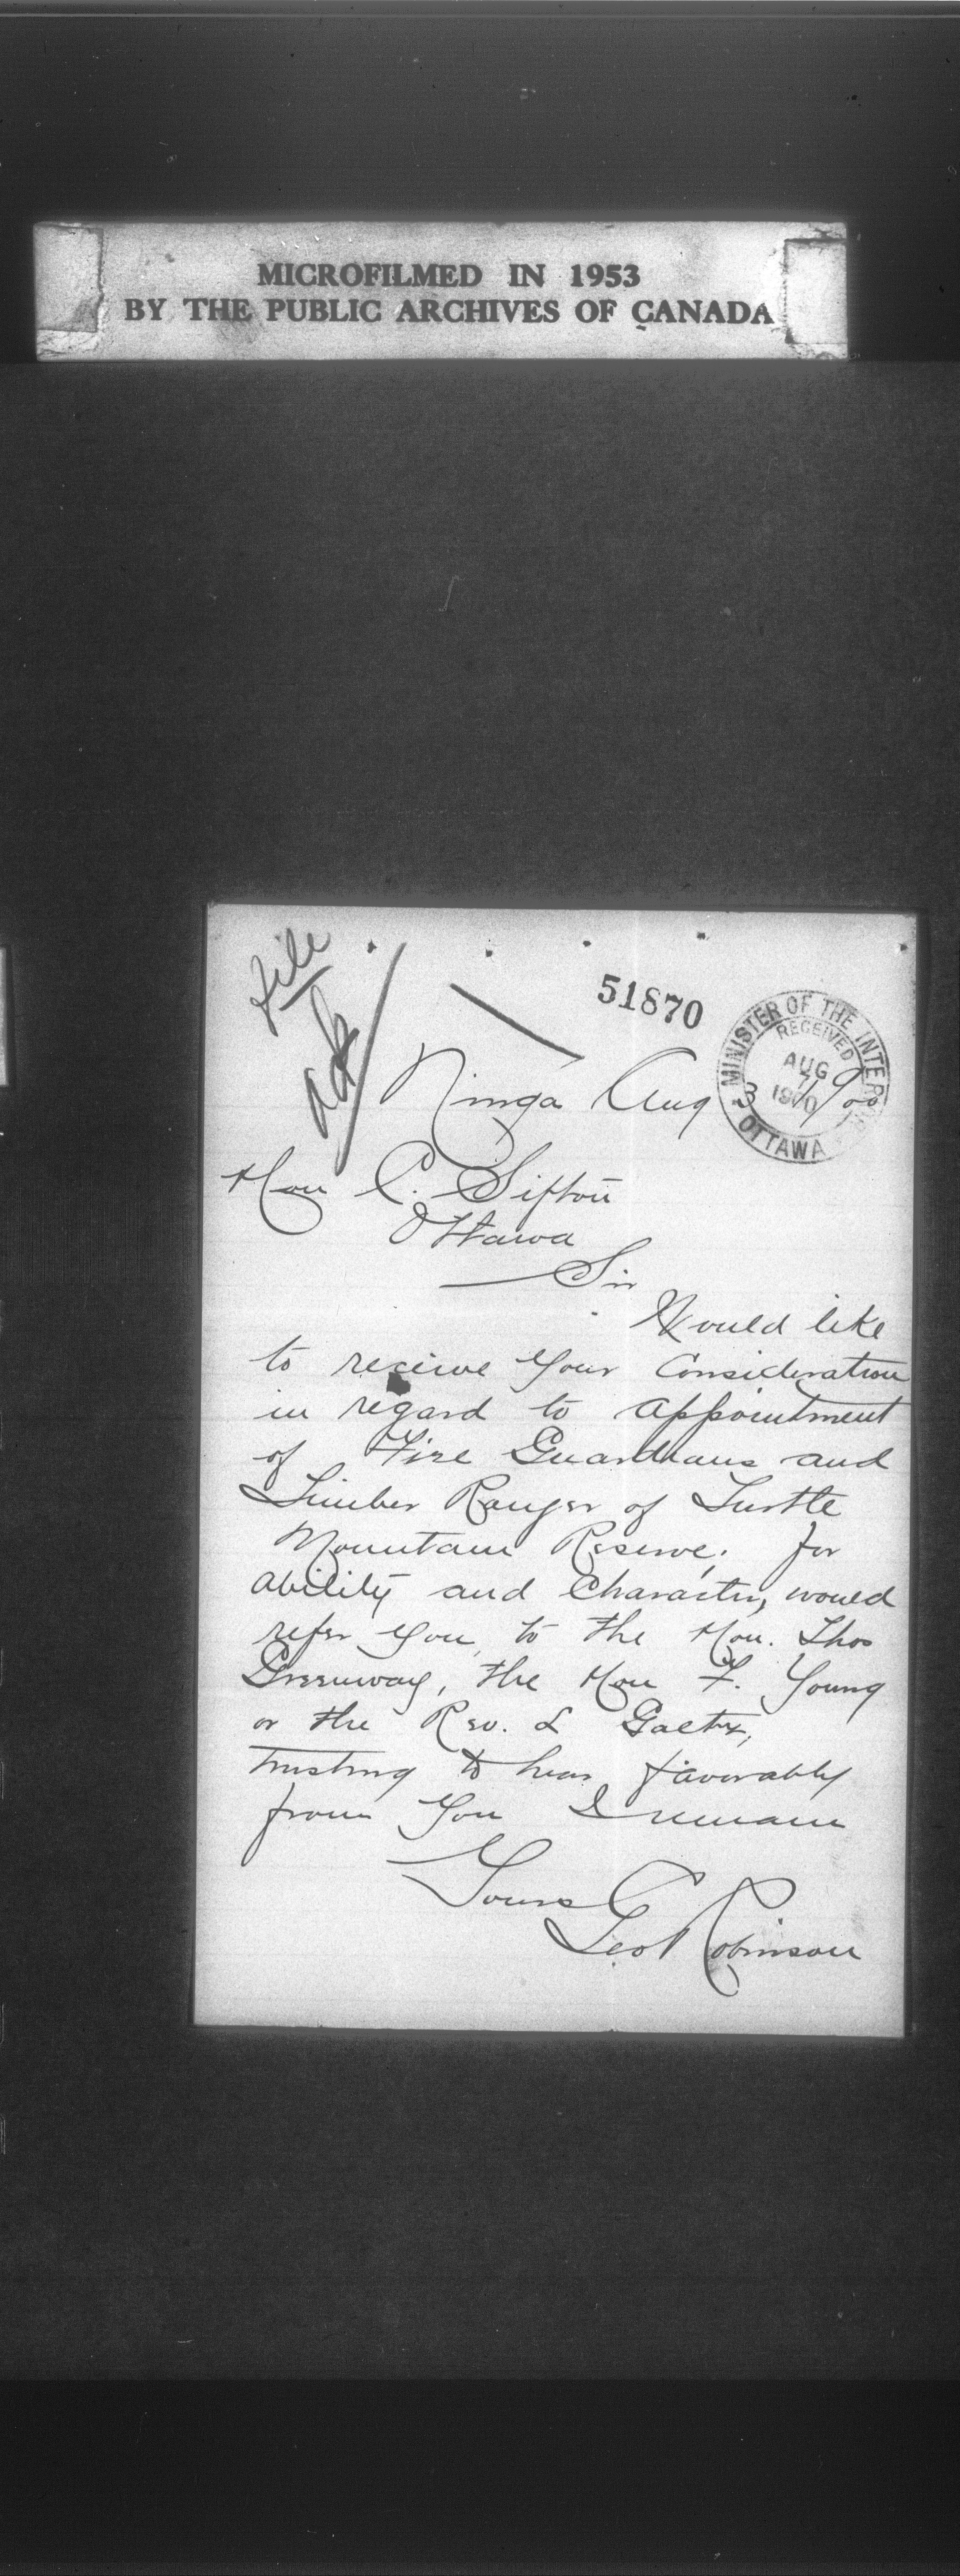 MICROFILMED IN 1953
BY THE PUBLIC ARCHIVES OF CANADA
file
ack
51870
MINISTER OF THE INTERIOR
RECEIVED
AUG
7
1900
OTTAWA
Ninga Aug 3 1900
Hon C. Sifton
Ottawa
Sir
Would like
to receive your consideration
in regard to appointment
of Fire Guardians and
Timber Ranger of Turtle
Mountain Reserve; for
ability and Character, would
refer you, to the Hon. Thos
Greenway, the Hon F. Young
or the Rev. L Gaetz,
trusting to hear favorably
from you I remain
Yours
Geo Robinson